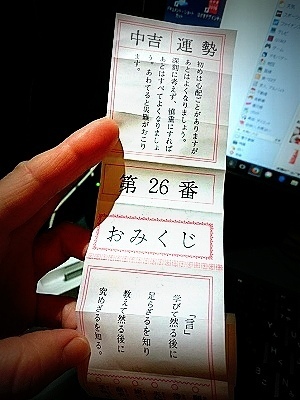 中吉 運勢
初めは心配ごとがありますが
あとはよくなりましょう。
深刻に考えず、慎重にすれば
あとはすべてよくなりましょ
う。あわてると災難がおこり
ます。
第26番
おみくじ
「言」
学びて然る後に
足らざるを知り
教えて然る後に
究めざるを知る。